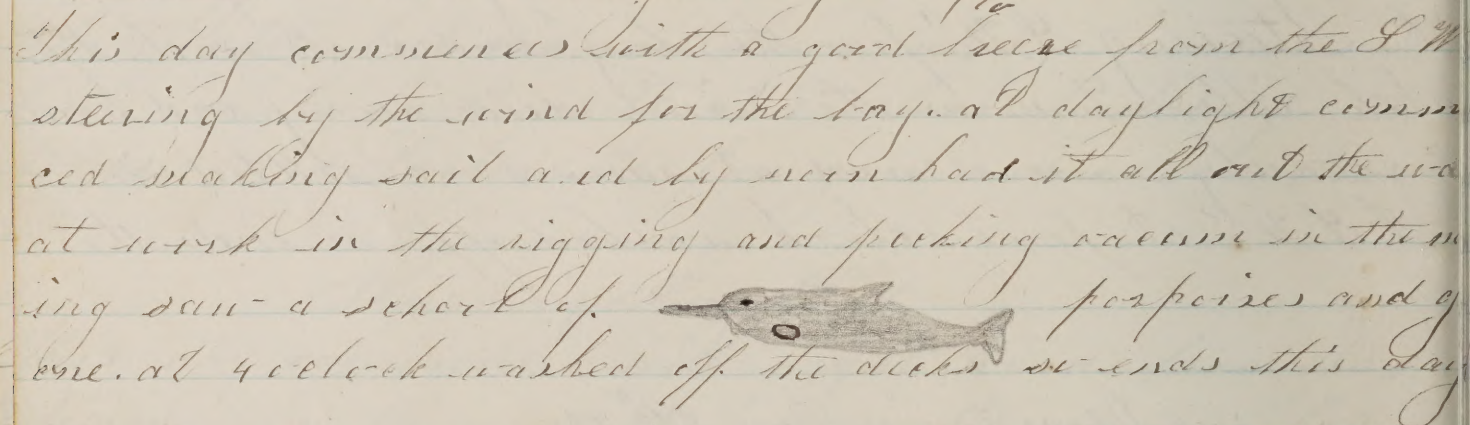 This day commences with a good breeze from the S W
steering by the wind for the bay. at daylight comm
ced making sail and by noon had it all out the wa
at work in the rigging and picking oacum in the m
ing saw a school of porpoises and g
one. at 4 oclock washed off the decks so ends this day